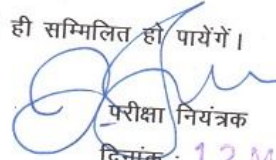 ही सम्मिलित हो पायेंगें।
परीक्षा नियंत्रक
दिनांक : 12